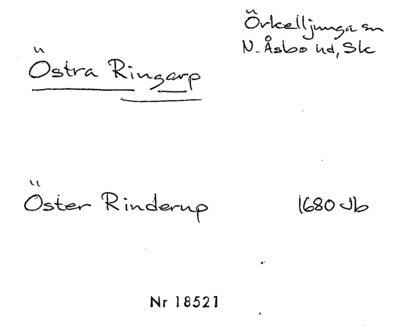 Örkelljunga sn
N. Åsbo hd, Sk
Östra Ringarp
Öster Rinderup 1680 Jb
Nr 18521